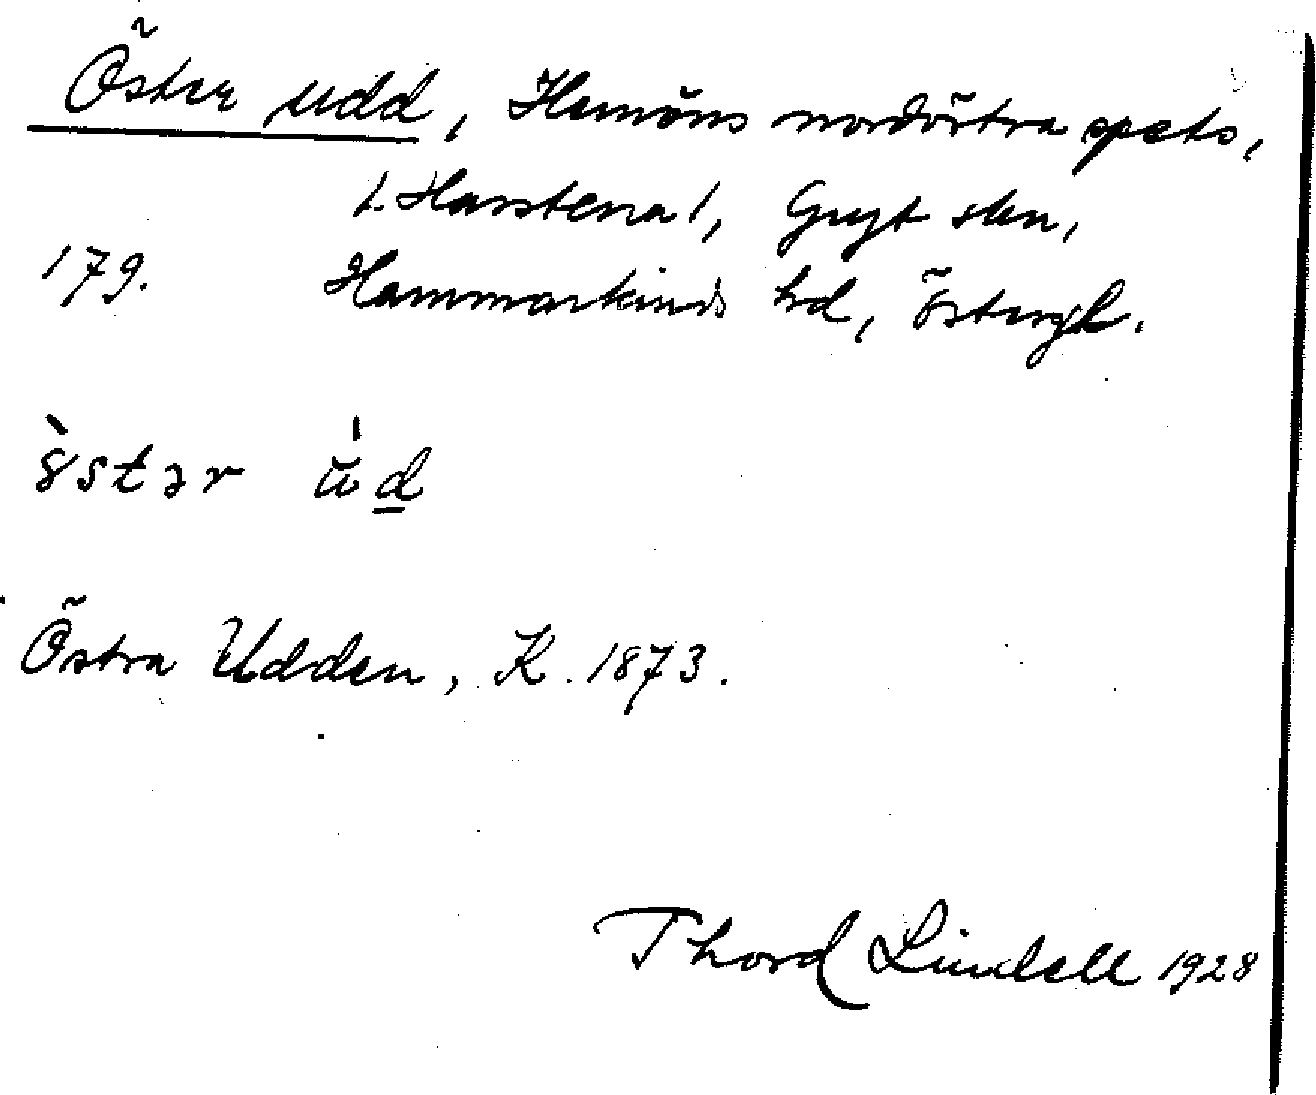 Öster udd, Hemöns nordöstra spets,
(. Harstena), Gryt skn,
179. Hammarkinds hd, Östergl.
östər ùd
Östra Udden, K. 1873.
Thord Lindell 1928